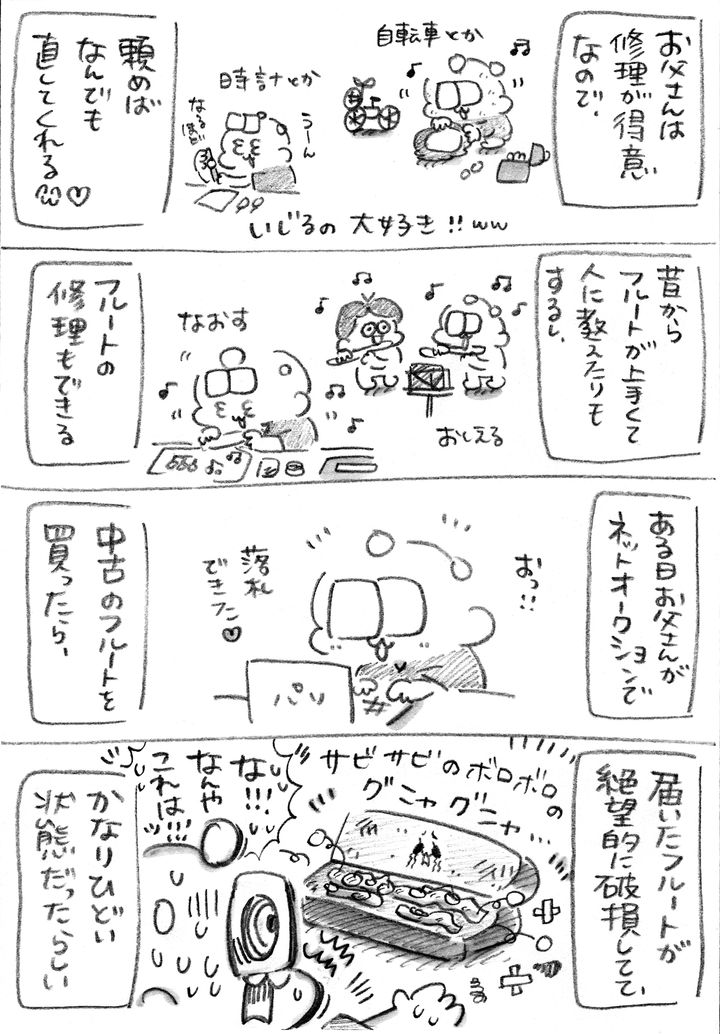 お父さんは
修理が得意
なので、
自転車とか
時計とか
うーん
なる
ほど
いじるの 大好き!!ww
頼めば
なんでも
直してくれる
♡
昔から
フルートが上手くて
人に教えたりも
するし、
おしえる
なおす
フルートの
修理もできる
ある日お父さんが
ネットオークションで
おっ!!
落札
できた♡
パソ
中古のフルートを
買ったら、
届いたフルートが
絶望的に破損してて、
サビサビのボロボロの
グニャグニャ…
な!!!
なんや
これは!!!
かなりひどい
状態だったらしい